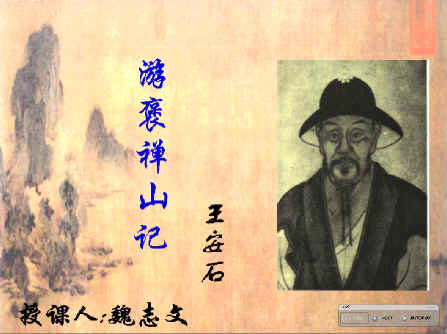 游褒禅山记
王安石
授课人:魏志文